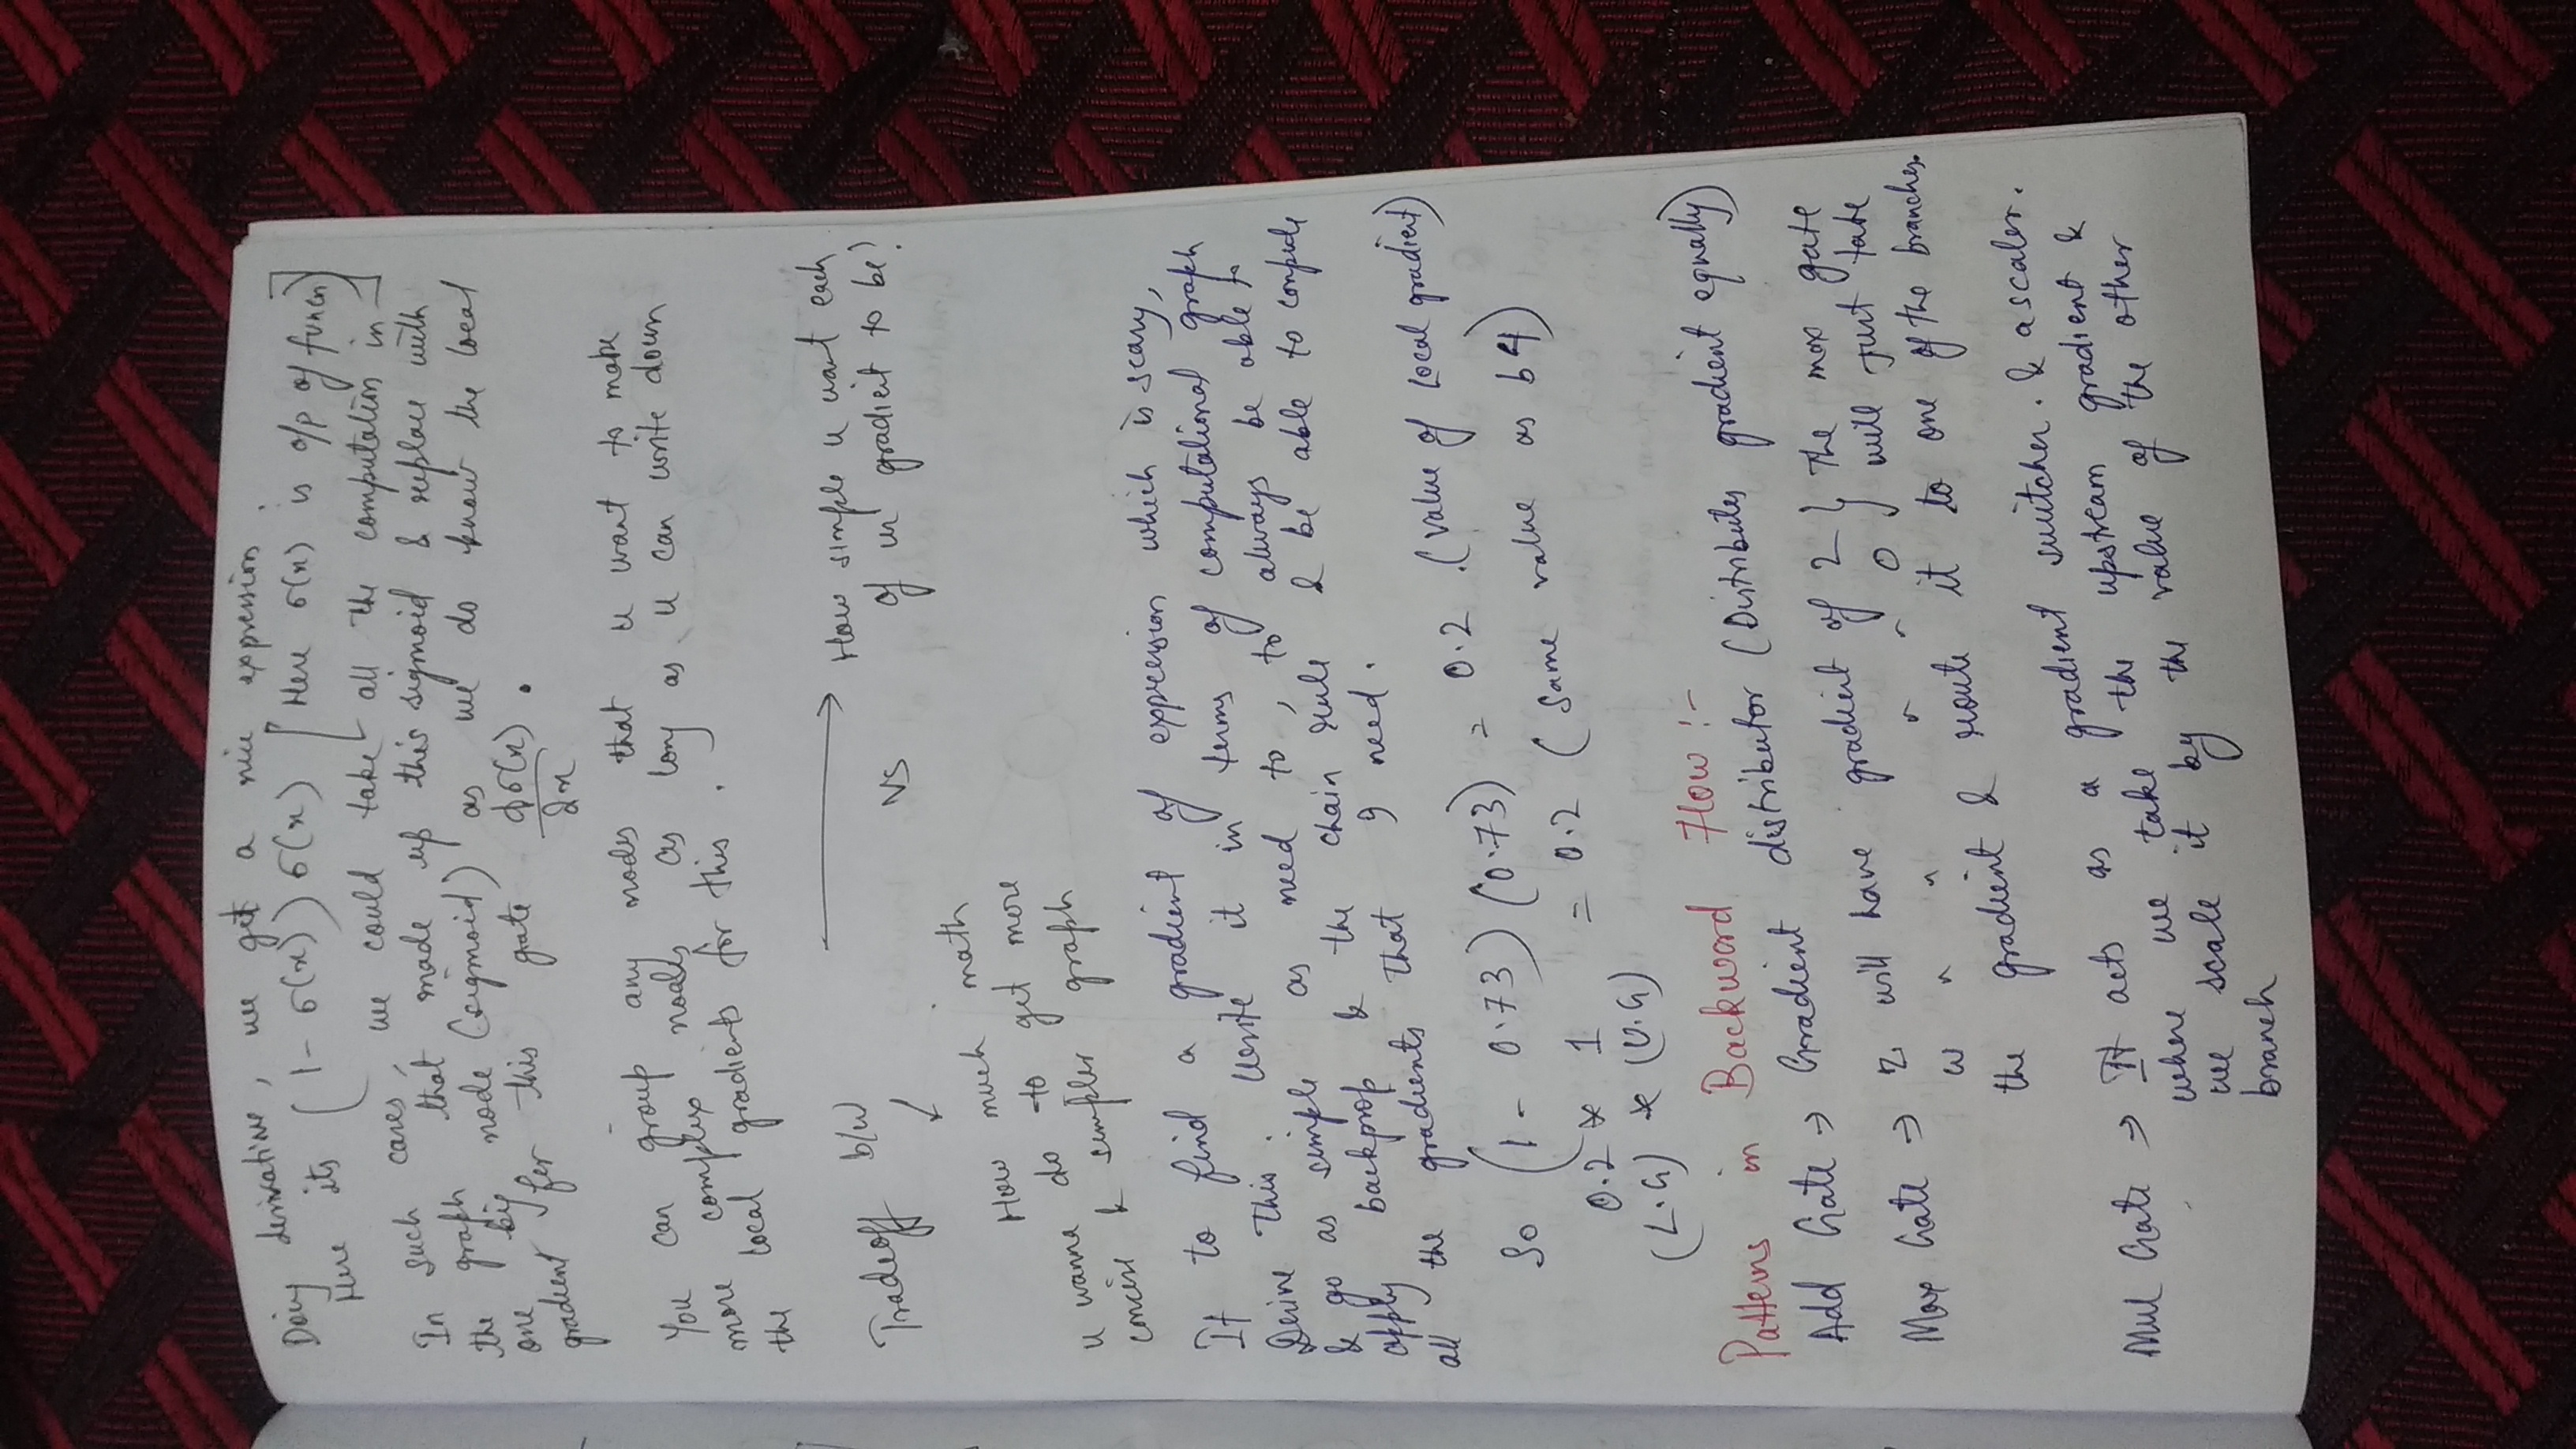 Doing derivative, we get a nice expression.
Here its (1 - σ(x)) σ(x) [Here σ(x) is o/p of funcn]
In such cases, we could take all the computation in
the graph that made up this sigmoid & replace with
one big node (sigmoid) as we do know the local
gradient for this gate ∂σ(x)/∂x.
You can group any nodes that u want to make
more complex nodes as long as u can write down
the local gradients for this.
Tradeoff b/w → How simple u want each
of ur gradient to be?
↓ VS
How much math
u wanna do to get more
concise & simpler graph
If to find a gradient of expression which is scary,
Derive this. Write it in terms of computational graph
& go as simple as need to, to always be able to
apply backprop & the chain rule & be able to compute
all the gradients that I need.
So (1 - 0.73) (0.73) = 0.2 . (Value of Local gradient)
0.2 * 1 = 0.2 (Same value as b4)
(L.G) * (U.G)
Patterns in Backward Flow :-
Add Gate → Gradient distributor (Distributes gradient equally)
Max Gate → z will have gradient of 2 } The max gate
w " " " " 0 } will just take
the gradient & route it to one of the branches.
Mul Gate → It acts as a gradient switcher. & a scaler.
where we take the upstream gradient &
we scale it by the value of the other
branch